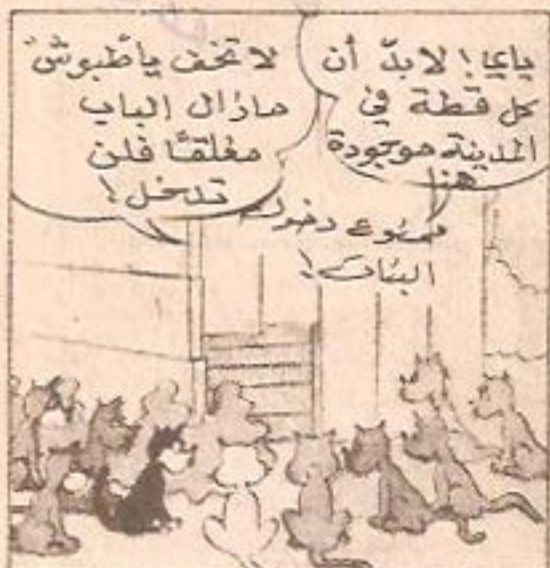 يا عيا! لابدّ أن
كل قطة في
المدينة موجودة
هنا
لا تخف يا طبوش
مازال الباب
مغلقًا فلن
تدخل!
ممنوع دخول
البنات!